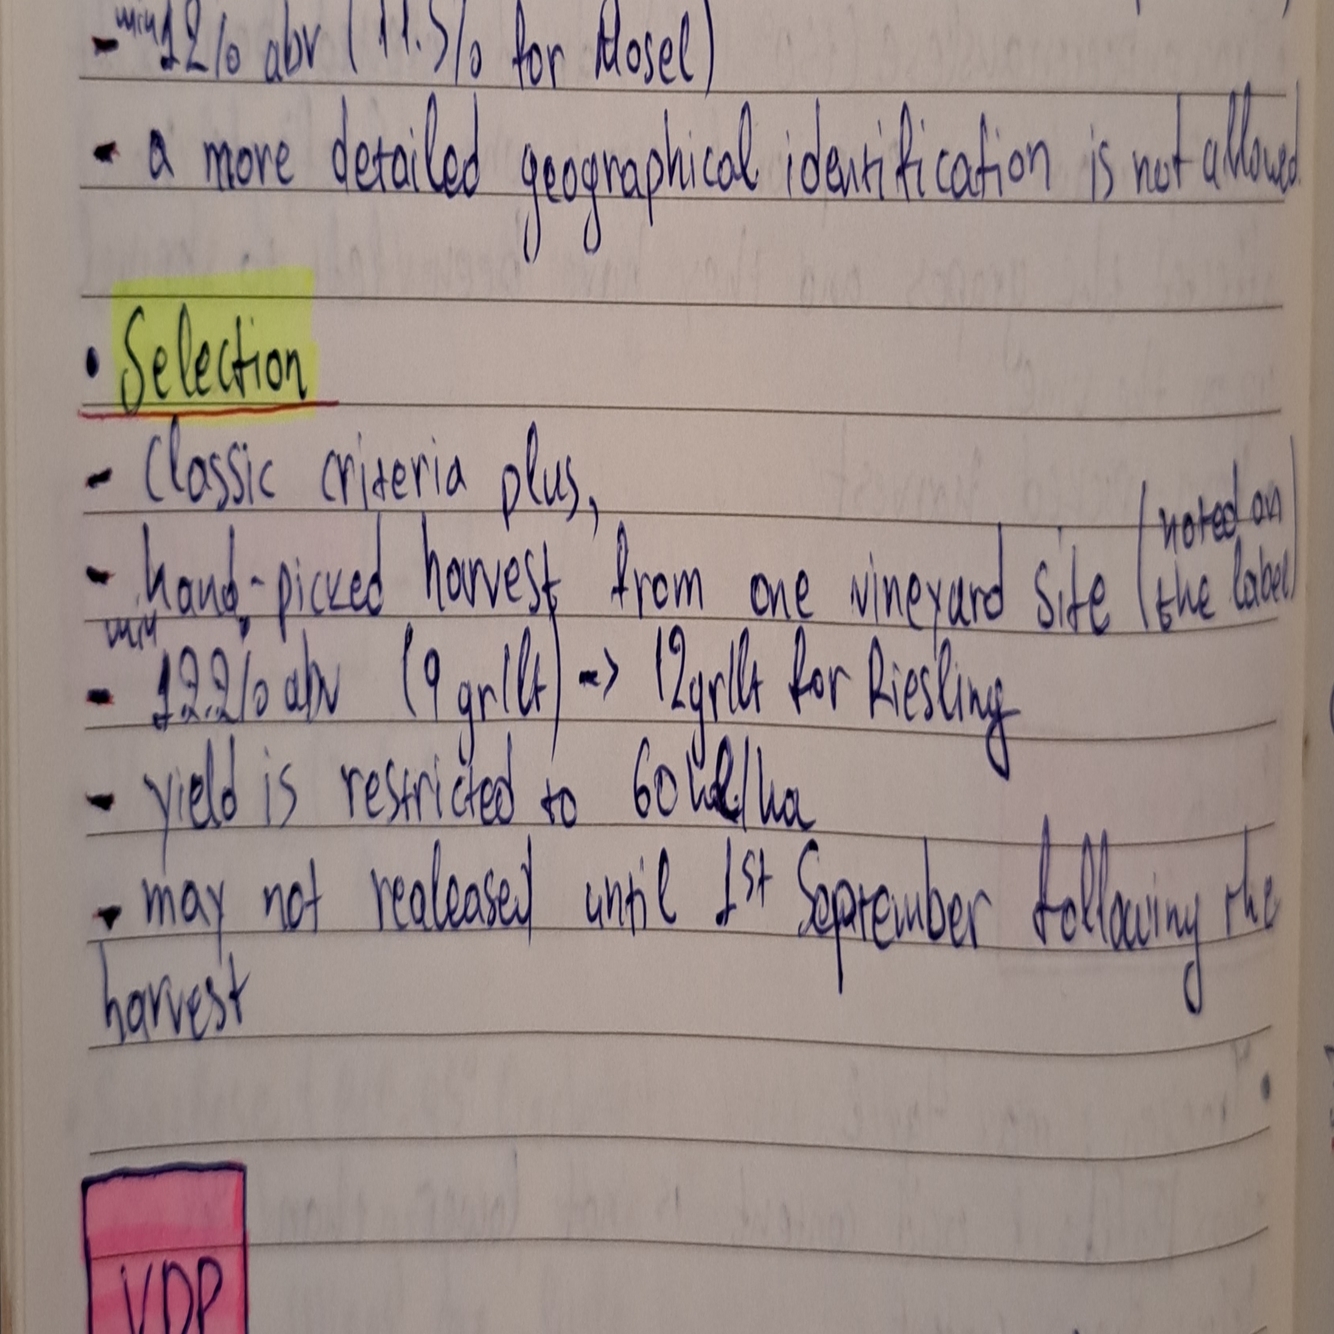 - min 12% abv (11.5% for Mosel)
- a more detailed geographical identification is not allowed
• Selection
- Classic criteria plus,
- hand-picked harvest from one vineyard site (noted on the label)
- min 12.2% abv (9 gr/lt) -> 12gr/lt for Riesling
- yield is restricted to 60 hl/ha
- may not realeased until 1st September following the
harvest
VDP